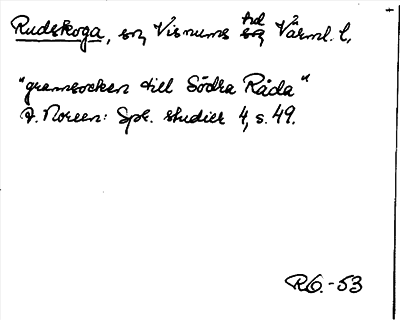 Rudskoga, sn Visnums hd Värml. l,
"grannsocken till Södra Råda"
A. Noreen: Spr. studier 4, s. 49.
R.O.-53